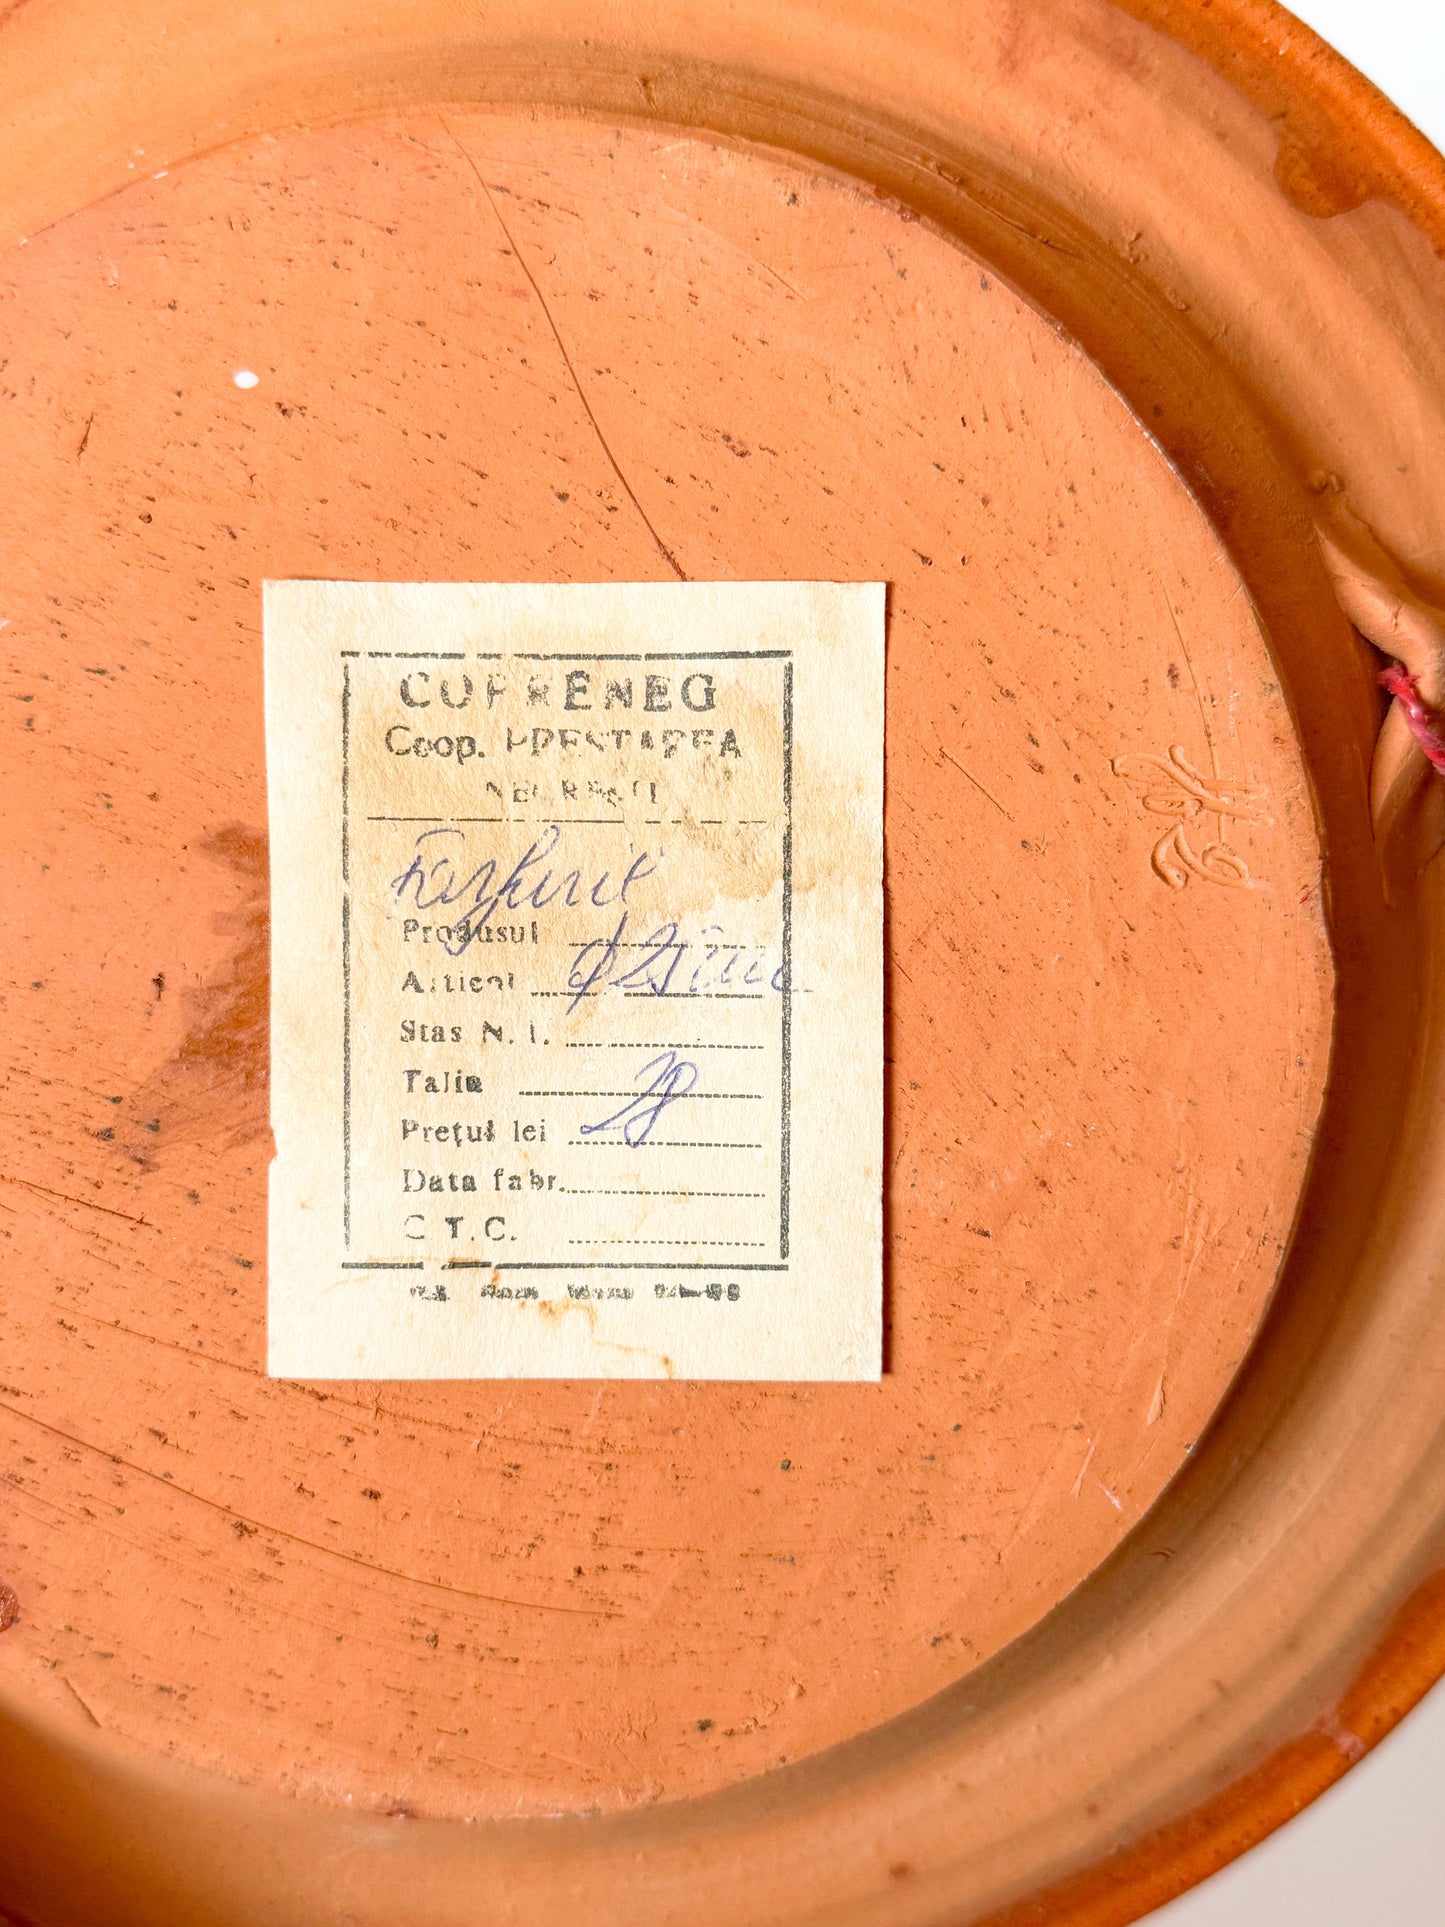 COPRENEG
Coop. PRESTAREA
NEGREȘTI
Farfurii
Produsul
Articol ϕ 25 cm
Stas N. I.
Talia
Prețul lei 28
Data fabr.
C.T.C.